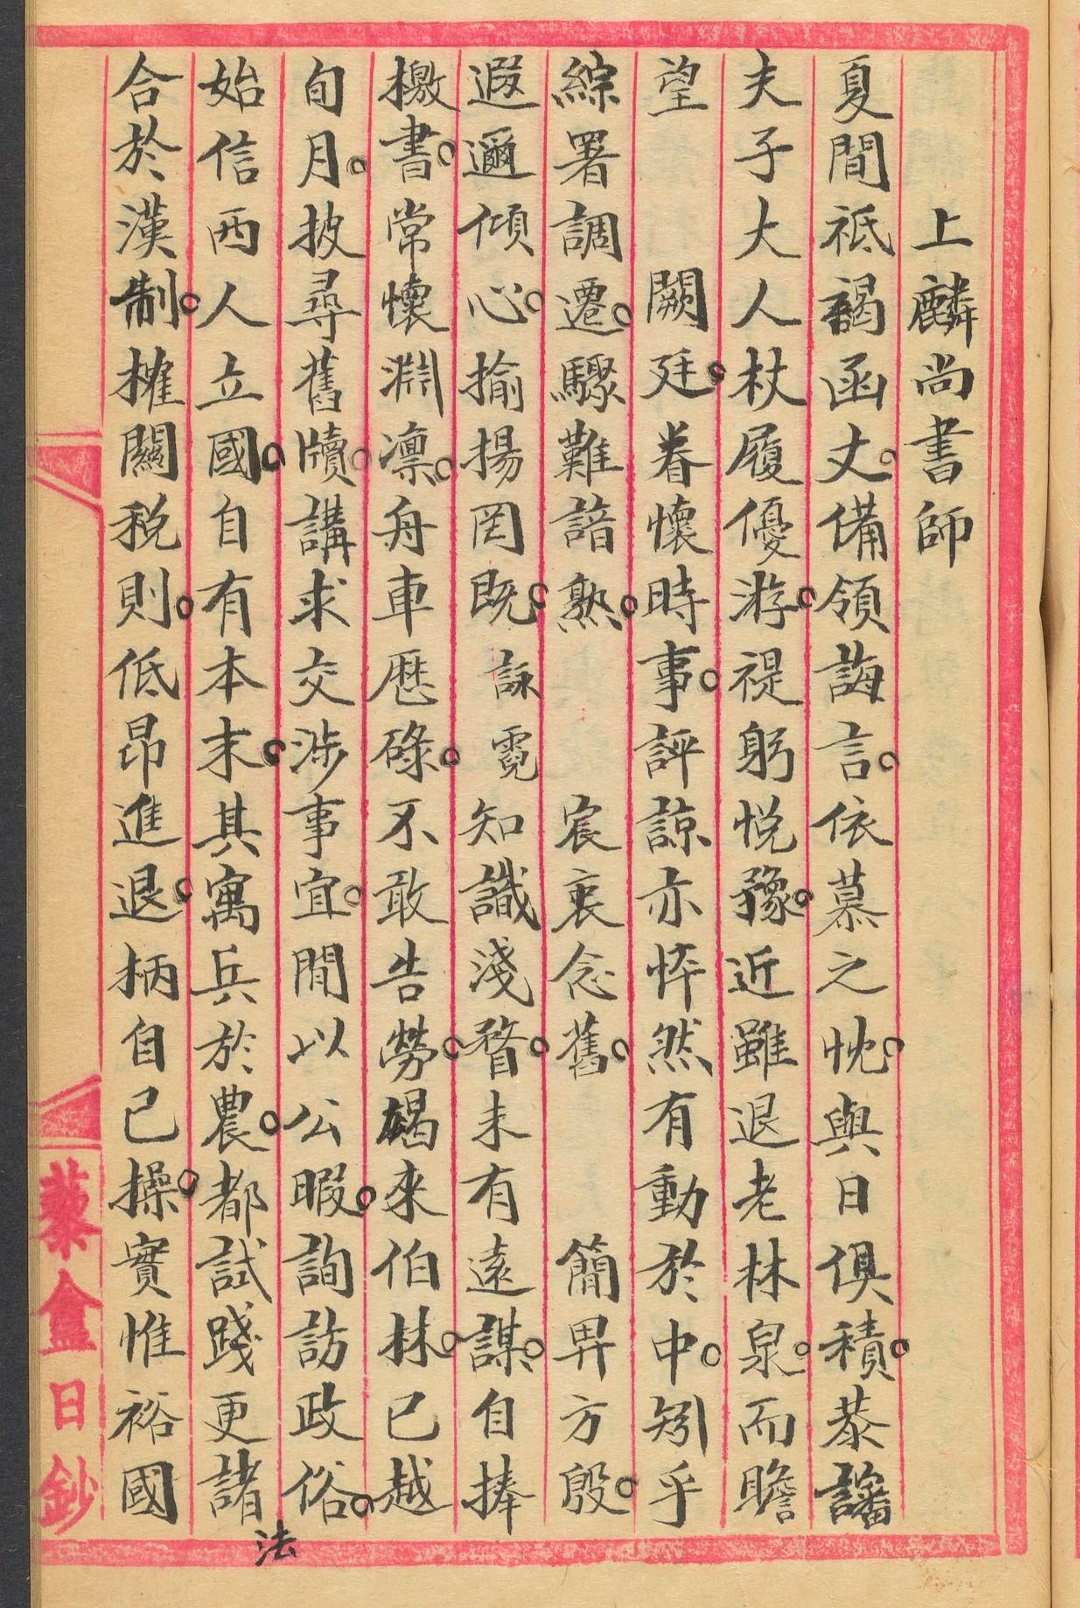 上麟尚書師
夏間祗謁函丈。備領誨言。依慕之忱。與日俱積。恭諗
夫子大人杖履優游。禔躬悅豫。近雖退老林泉。而瞻
望　闕廷。眷懷時事。評諒亦悴然有動於中。矧乎
綜署調遷。驟難諳熟。　宸衷念舊。　簡畀方殷。
遐邇傾心。揄揚罔既。詠霓知識淺瞀。未有遠謀。自捧
檄書。常懷淵凛。舟車歷碌。不敢告勞。朅來伯林。已越
旬月。披尋舊牘。講求交涉事宜。間以公暇。詢訪政俗。
始信西人立國。自有本末。其寓兵於農。都試踐更諸法
合於漢制。榷關税則。低昂進退。柄自己操。實惟裕國
藜盦日鈔